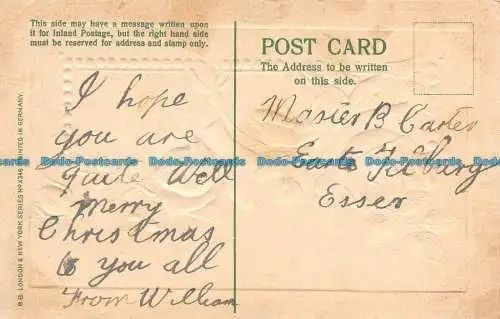 This side may have a message written upon
it for Inland Postage, but the right hand side
must be reserved for address and stamp only.
POST CARD
The Address to be written
on this side.
I hope
you are
quite well
merry
Christmas
to you all
From William
Master B Carter
East Tilbury
Essex
B.B. LONDON & NEW YORK. SERIES No X346 PRINTED IN GERMANY.
Dodo-Postcards Dodo-Postcards Dodo-Postcards
Dodo-Postcards Dodo-Postcards Dodo-Postcards